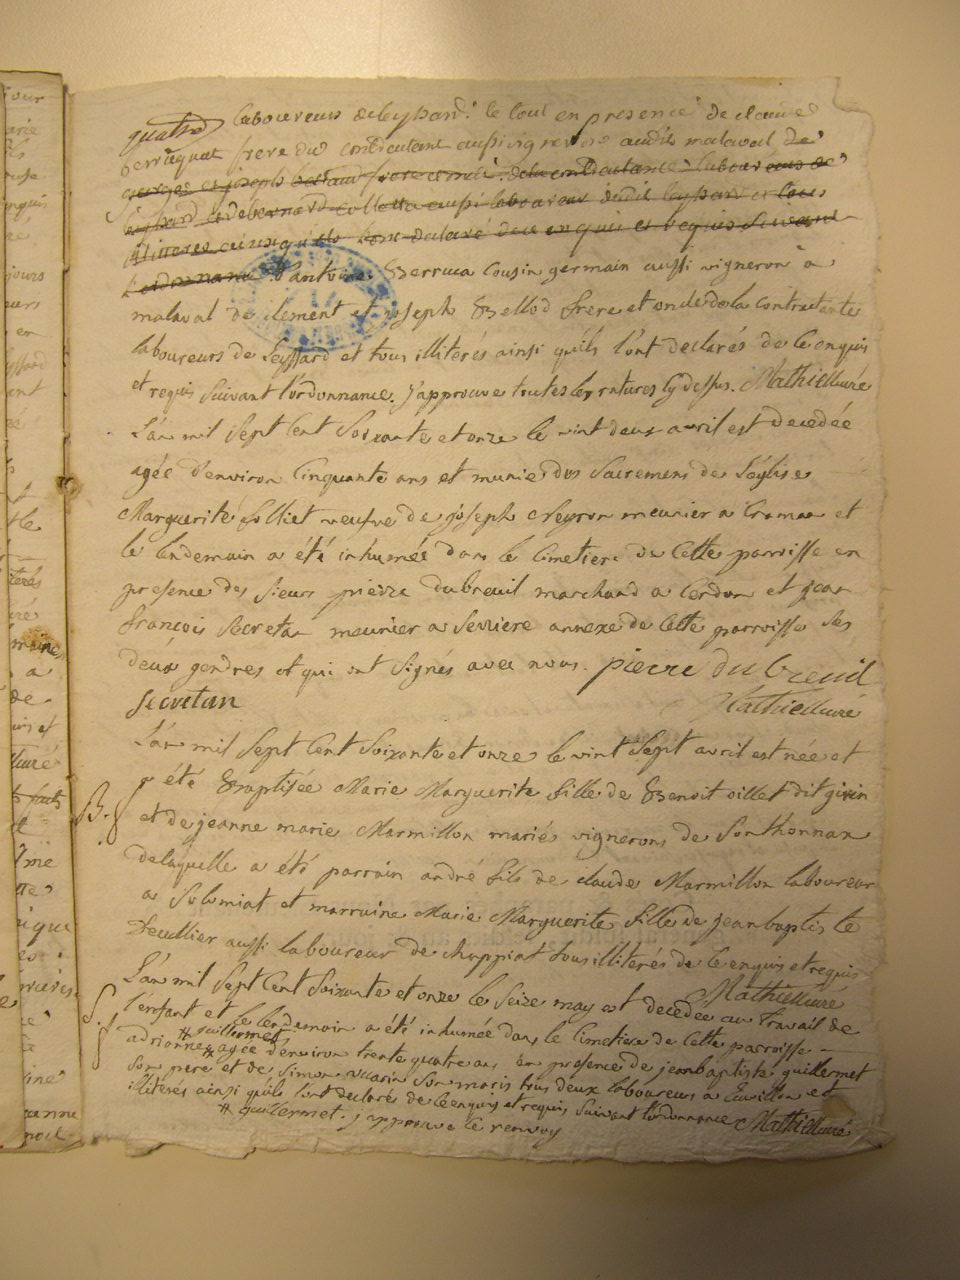 quatre laboureurs de leyssard. le tout en presence de claude
berruquat frere du contractant aussi vigneron audit malaval de
george et joseph frere et de la contractante laboureurs de
leyssard et de bernard aussi laboureur dudit leyssard et tous
illitteres ainsi qu'ils l'ont declaré de ce enquis et requis suivant
l'ordonnance d'antoine Berruca cousin germain aussi vigneron à
malaval de clement et joseph Bellod frere et oncle de la contractante
laboureurs de Leyssard et tous illiterés ainsi qu'ils l'ont declarés de ce enquis
et requis suivant l'ordonnance. j'approuve toutes les ratures cy dessus. Mathieu curé
L'an mil sept cent soixante et onze le vint deux avril est decedée
agée d'environ cinquante ans et munie des sacremens de l'eglise
Marguerite folliet veufve de joseph Creyron meunier a et
le lendemain a été inhumée dans le cimetiere de cette parroisse en
presence des sieurs pierre dubreuil marchand a Cerdon et jean
francois secretan meunier a serriere annexe de cette parroisse ses
deux gendres et qui ont signés avec nous. pierre du breuil
secretan Mathieu curé
L'an mil sept cent soixante et onze le vint sept avril est née et
B. a été Baptisée Marie Marguerite fille de Benoit oillet dit givin
et de jeanne marie Marmillon mariés vignerons de Sonthonnax
delaquelle a été parrain andré fils de claude Marmillon laboureur
a Solomiat et marraine Marie Marguerite fille de jean baptiste
Fecullier aussi laboureur de chappiat tous illiterés de ce enquis et requis
Mathieu curé
S. L'an mil sept cent soixante et onze le seize may est decedée au travail de
l'enfant et le lendemain a été inhumée dans le cimetiere de cette parroisse
# guillermet
adrianne # agée d'environ trente quatre ans en presence de jean baptiste guillermet
son pere et de simon son maris tous deux laboureurs a et
illiterés ainsi qu'ils l'ont declarés de ce enquis et requis suivant l'ordonnance Mathieu curé
# guillermet. j'approuve le renvoy